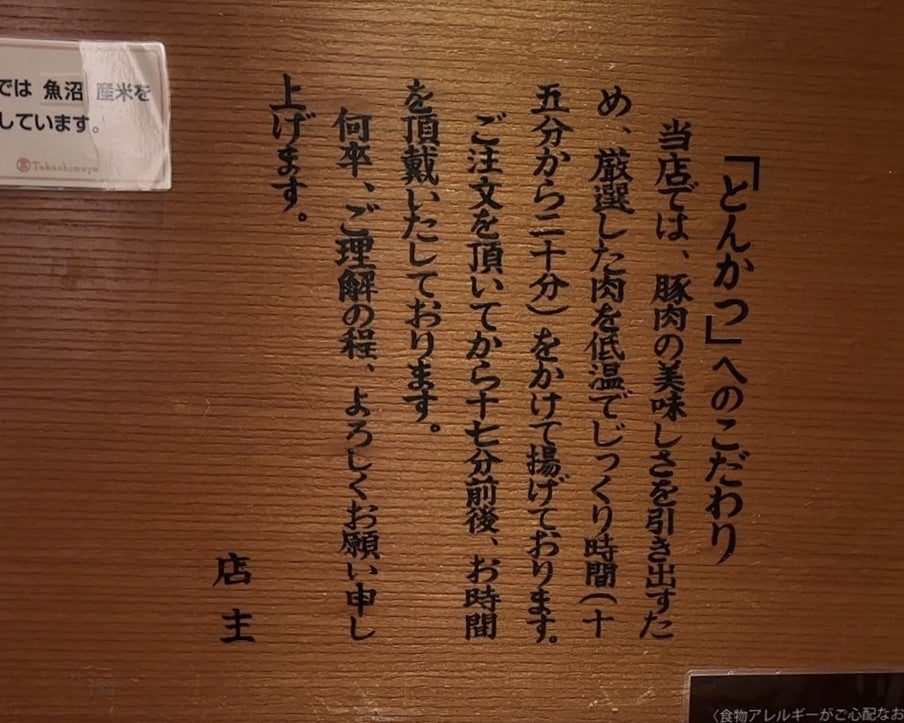 「とんかつ」へのこだわり
当店では、豚肉の美味しさを引き出すた
め、厳選した肉を低温でじっくり時間(十
五分から二十分)をかけて揚げております。
ご注文を頂いてから十七分前後、お時間
を頂戴いたしております。
何卒、ご理解の程、よろしくお願い申し
上げます。
店主
では 魚沼 産米を
しています。
Takashimaya
〈食物アレルギーがご心配なお